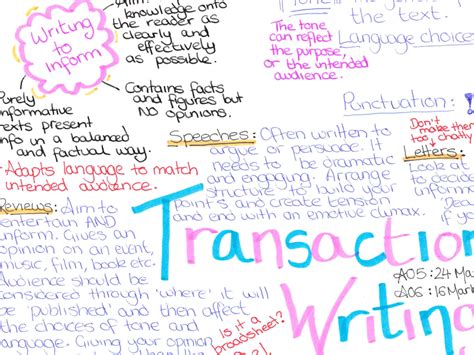 Writing
to
inform
Aim:
knowledge onto
the reader as
clearly and
effectively
as possible.
Contains facts
and figures but
NO opinions.
Purely
informative
texts present
info in a balanced
and factual way.
Adapts language to match
intended audience.
The tone
can reflect
the purpose,
or the intended
audience.
the text.
Language choices
Punctuation: !
Speeches: Often written to
argue or persuade. It
needs to be dramatic
and engaging. Arrange
structure to build your
points and create tension
and end with an emotive climax.
Don't
make them
too chatty
Letters:
Look a
to decide
inform
Reviews: Aim to
entertain AND
inform. Gives an
opinion on an event,
music, film, book etc.
Audience should be
considered through 'where' it will
be 'published' and then affect
the choices of tone and
language. Giving your opinion
Transaction
Writing
AO5: 24 Ma
AO6: 16 Mark
Is it a
broadsheet?